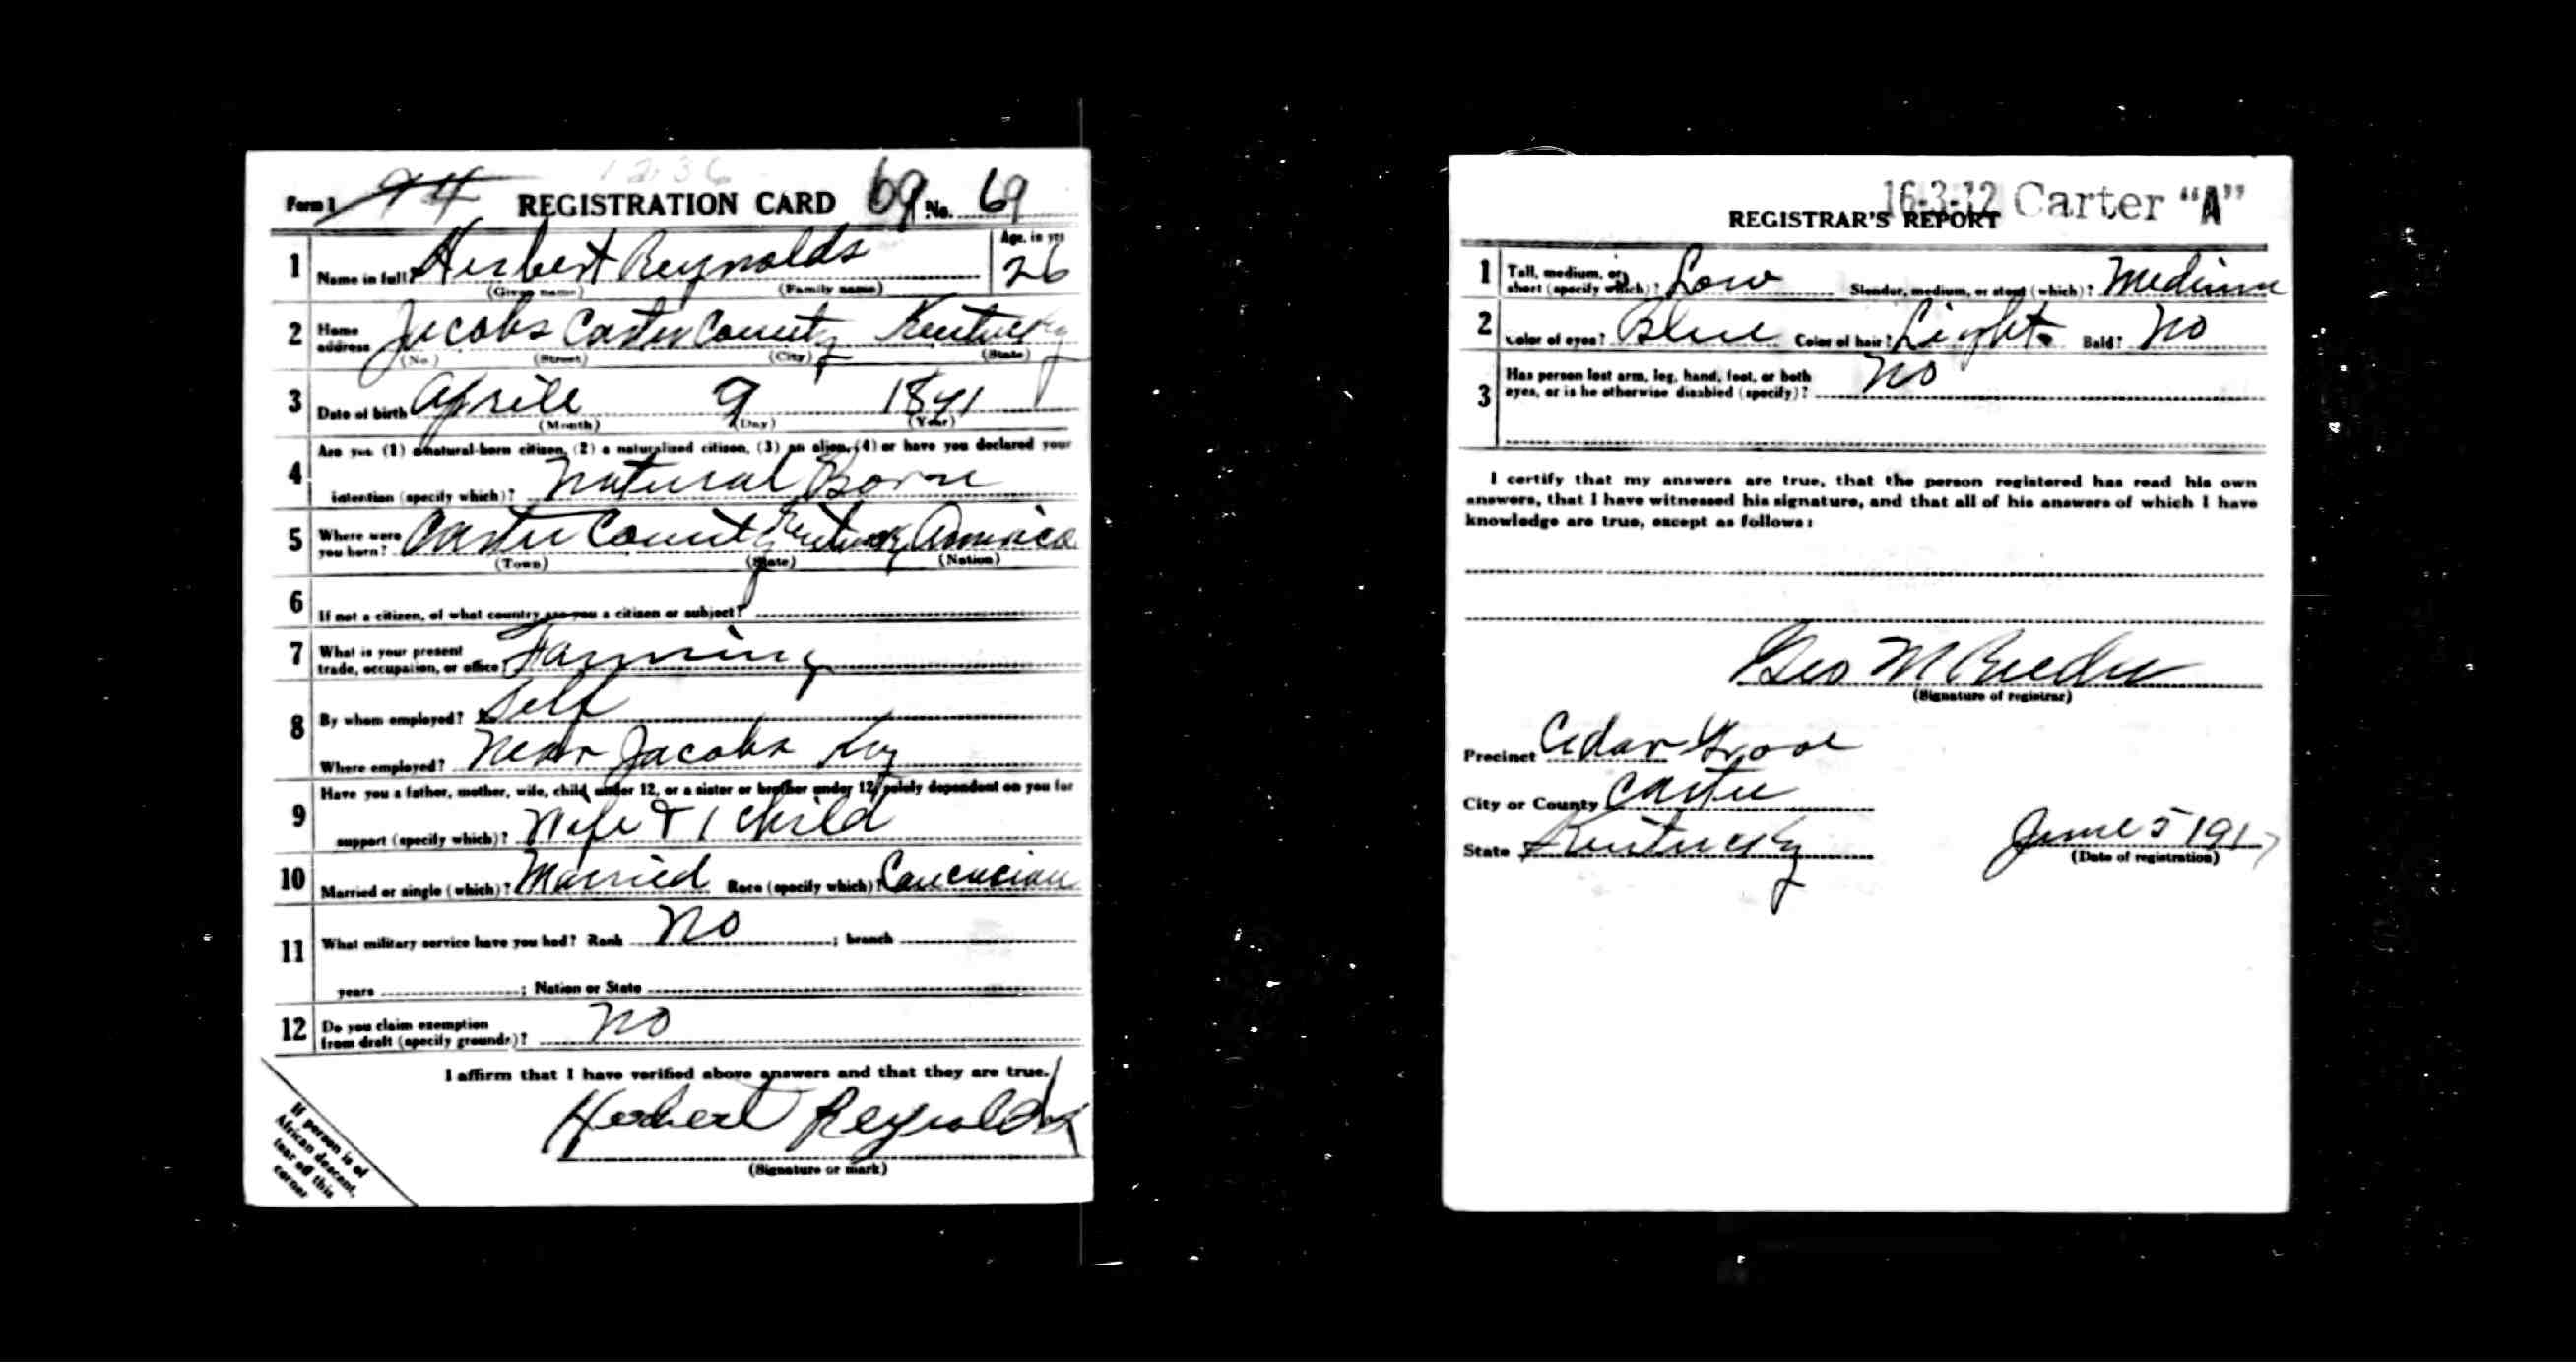 1236
Form 1 94 REGISTRATION CARD 69 No. 69
1 Name in full? Herbert Reynolds Age, in yrs 26
(Given name) (Family name)
2 Home address Jacobs Carter County Kentucky
(No.) (Street) (City) (State)
3 Date of birth Aprile 9 1891
(Month) (Day) (Year)
4 Are you (1) a natural-born citizen, (2) a naturalized citizen, (3) an alien, (4) or have you declared your
intention (specify which)? Natural Born
5 Where were you born? Carter County Kentucky America
(Town) (State) (Nation)
6 If not a citizen, of what country are you a citizen or subject?
7 What is your present
trade, occupation, or office? Farming
8 By whom employed? Self
Where employed? Near Jacobs Ky
9 Have you a father, mother, wife, child under 12, or a sister or brother under 12, solely dependent on you for
support (specify which)? Wife & 1 child
10 Married or single (which)? Married Race (specify which)? Caucasian
11 What military service have you had? Rank No ; branch
years ; Nation or State
12 Do you claim exemption
from draft (specify grounds)? No
I affirm that I have verified above answers and that they are true.
Herbert Reynolds
(Signature or mark)
If person is of
African descent,
tear off this
corner
16-3-12 Carter "A"
REGISTRAR'S REPORT
1 Tall, medium, or
short (specify which)? Low Slender, medium, or stout (which)? Medium
2 Color of eyes? Blue Color of hair? Light Bald? No
3 Has person lost arm, leg, hand, foot, or both
eyes, or is he otherwise disabled (specify)? No
I certify that my answers are true, that the person registered has read his own
answers, that I have witnessed his signature, and that all of his answers of which I have
knowledge are true, except as follows:
Geo M
(Signature of registrar)
Precinct Cedar Grove
City or County Carter
State Kentucky June 5 1917
(Date of registration)